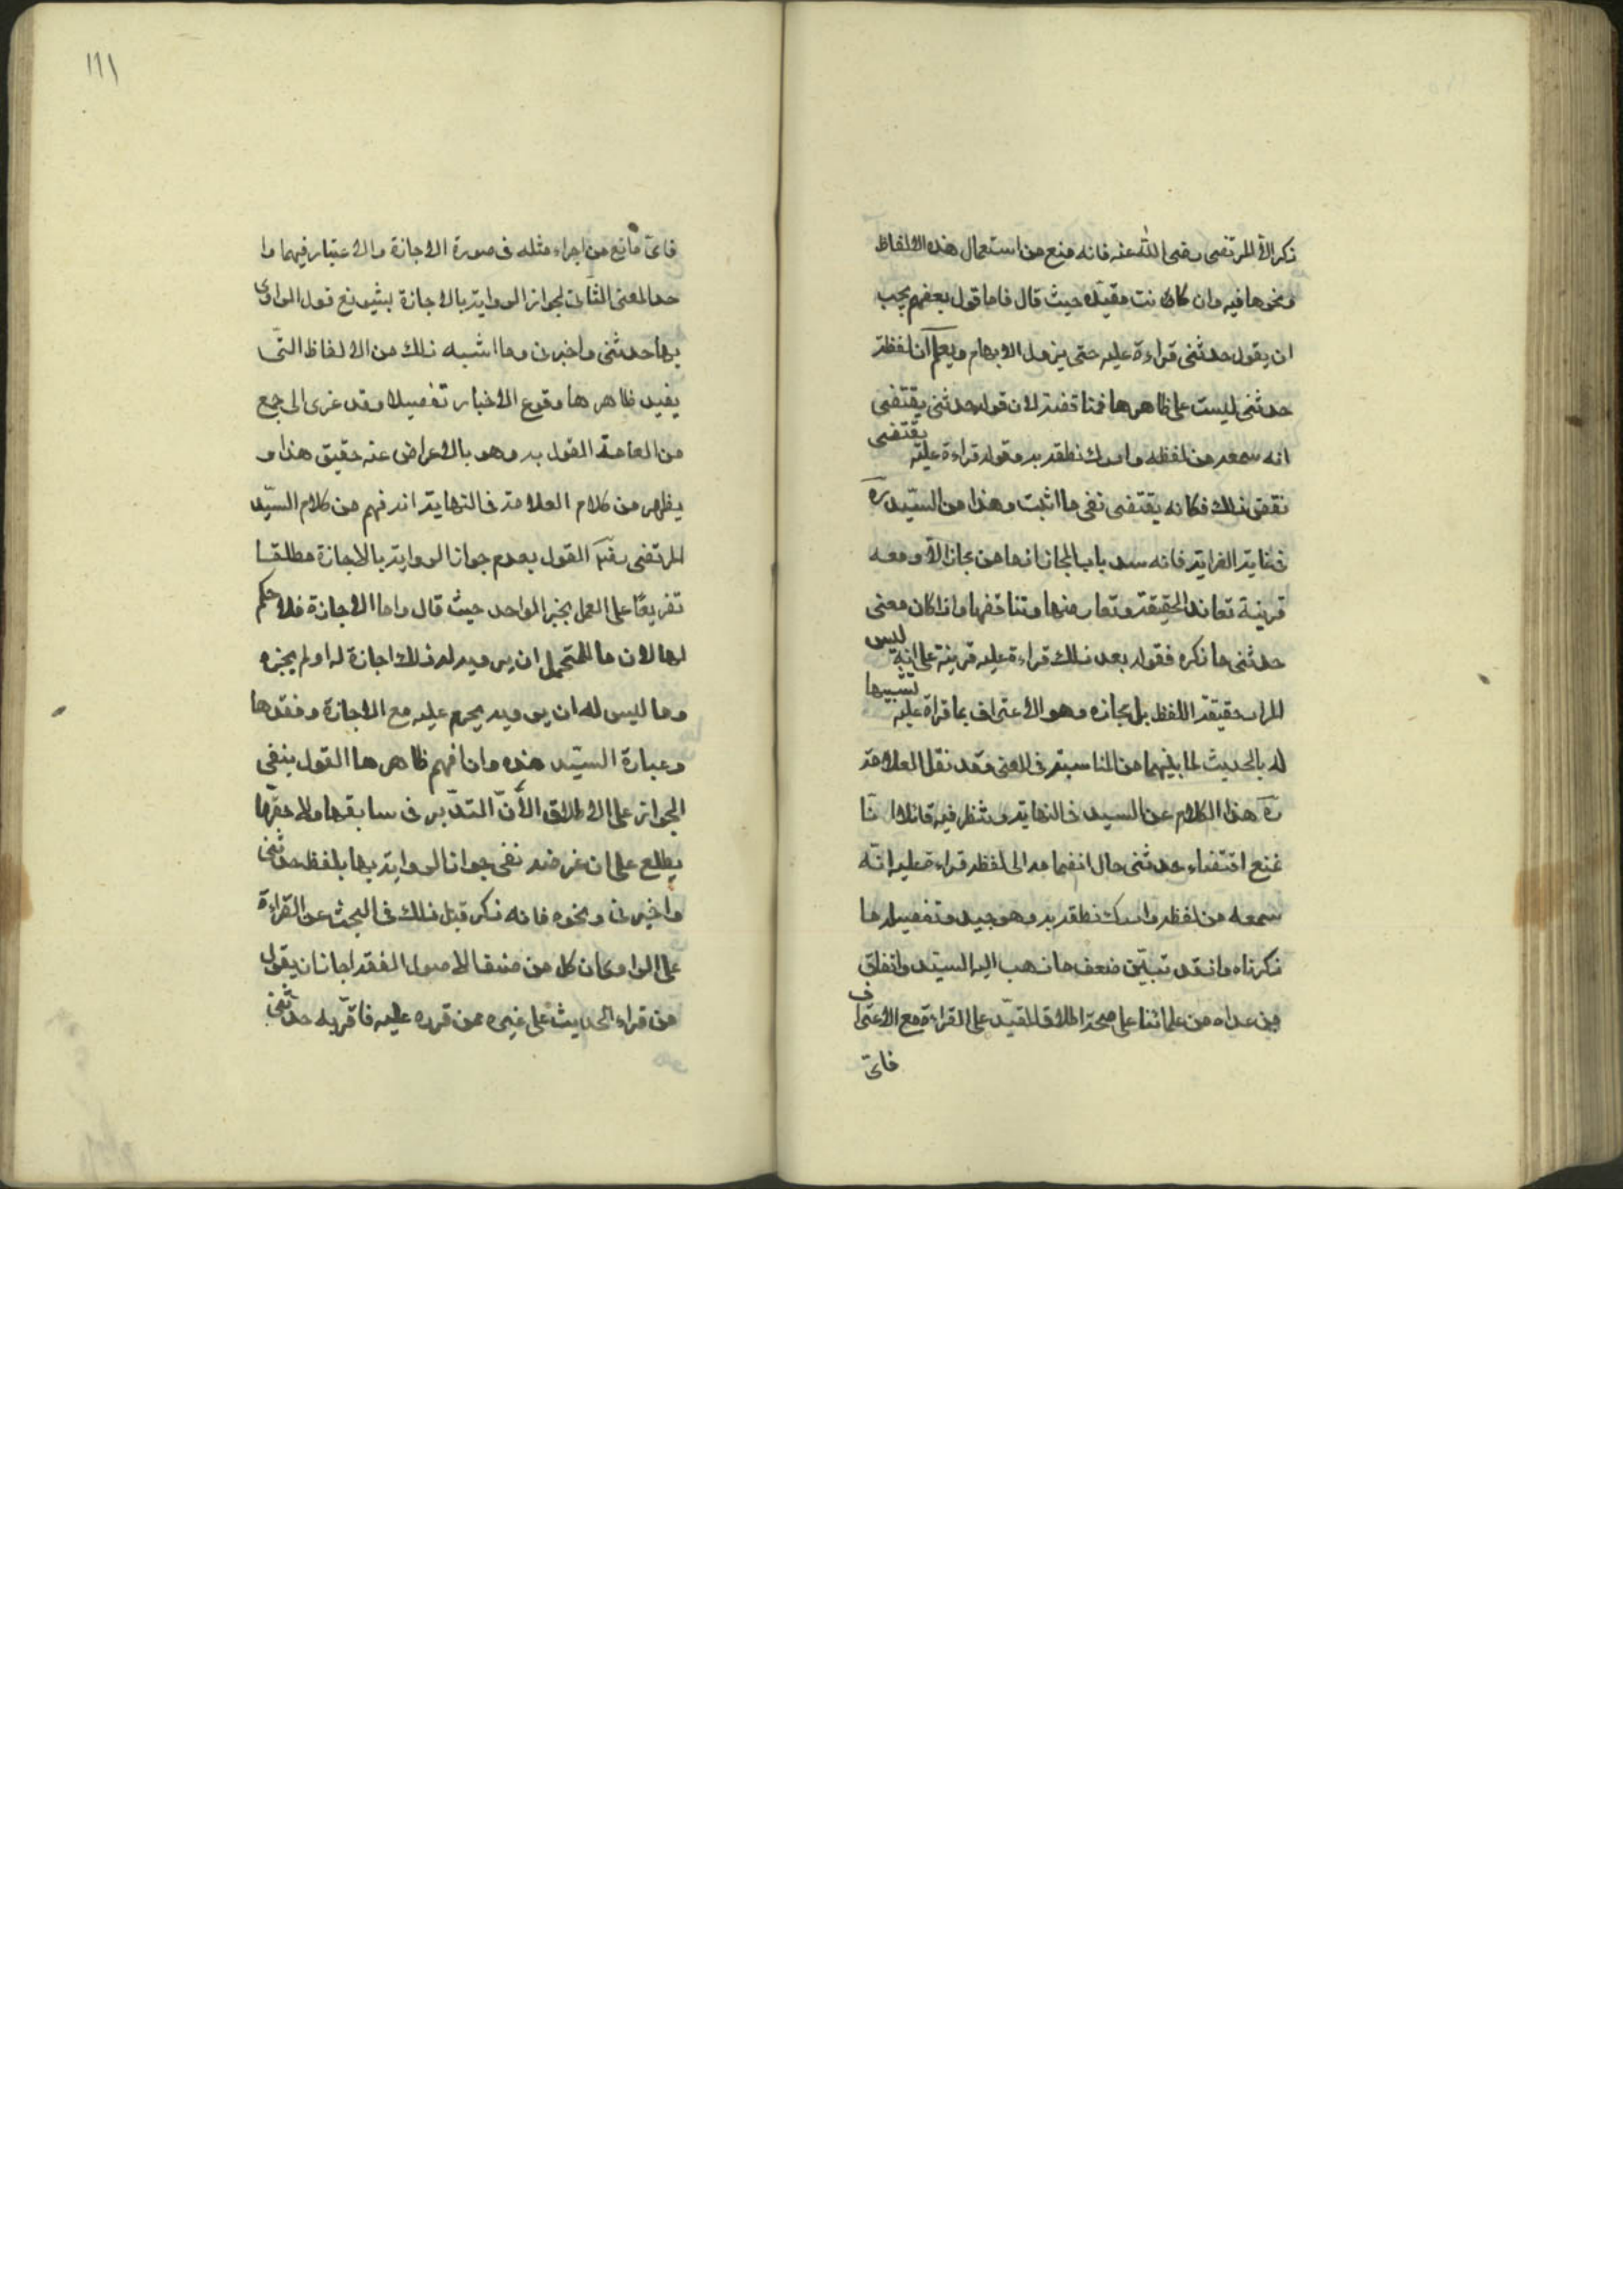 ذكر الا المرتضى رضى الله عنه فانه منع من استعمال هذه الالفاظ
ونحوها فيه وان كانت مقيده حيث قال فاما قول بعضهم يجب
ان يقول حدثنى قراءة عليه حتى يزول الابهام ويعلم ان لفظة
حدثنى ليست على ظاهرها فمناقضة لان قوله حدثنى يقتضى
انه سمعه من لفظه وادرك نطقه به وقوله قراءة عليه يقتضى
نقض ذلك فكانه يقتضى نفى ما اثبت وهذا من السيد ره
فى غاية الغرابة فانه سد باب المجاز اذ ما من مجاز الا ومعه
قرينة تعاند الحقيقة وتعارضها وتناقضها واذا كان معنى
حدثنى ما ذكره فقوله بعد ذلك قراءة عليه قرينة على انه ليس
المراد حقيقة اللفظ بل مجازه وهو الاعتراف بما قرأه عليه تشبيها
له بالحديث لما بينهما من المناسبة فى المعنى وقد نقل العلامة
ره هذا الكلام عن السيد فى النهاية وتنظر فيه قائلا انّا
نمنع اقتضاء حدثنى حال انضمامه الى لفظة قراءة عليه انه
سمعه من لفظه وادرك نطقه به وهو جيد وتفصيله ما
ذكرناه واذ قد تبيّن ضعف ما ذهب اليه السيد واتفاق
من عداه من علمائنا على صحة اطلاق المقيّد على القراءة مع الاعتراف
فاىّ
١١١
فاىّ مانع من اجراء مثله فى صورة الاجازة والاعتبار فيهما وا
حد المعنى الثانى لجواز الرواية بالاجازة بتسويغ قول الراوى
بها حدثنى واخبرنى وما اشبه ذلك من الالفاظ التى
يفيد ظاهرها وقوع الاخبار تفصيلا وقد عزى الى جمع
من العامة القول به وهو بالاعراض عنه حقيق هذا و
يظهر من كلام العلامة فى النهاية انه فهم من كلام السيّد
المرتضى القول بعدم جواز الرواية بالاجازة مطلقا
تفريعًا على العمل بخبر الواحد حيث قال واما الاجازة فلا حكم
لها لان ما للمتحمل ان يرويه له ذلك اجازة له او لم يجزه
وما ليس له ان يرويه يحرم عليه مع الاجازة وفقدها
وعبارة السيّد هذه وان افهم ظاهرها القول بنفى
الجواز على الاطلاق الا انّ التدبر فى سابقها ولاحقها
يطلع على ان غرضه نفى جواز الرواية بها بلفظ حدثنى
واخبرنى ونحوه فانه ذكر قبل ذلك فى البحث عن القراءة
على الراوى ان كل من صنف الاصول الفقه اجاز ان يقول
من قراء الحديث على غيره ممن قرره عليه فاقرّ به حدثنى